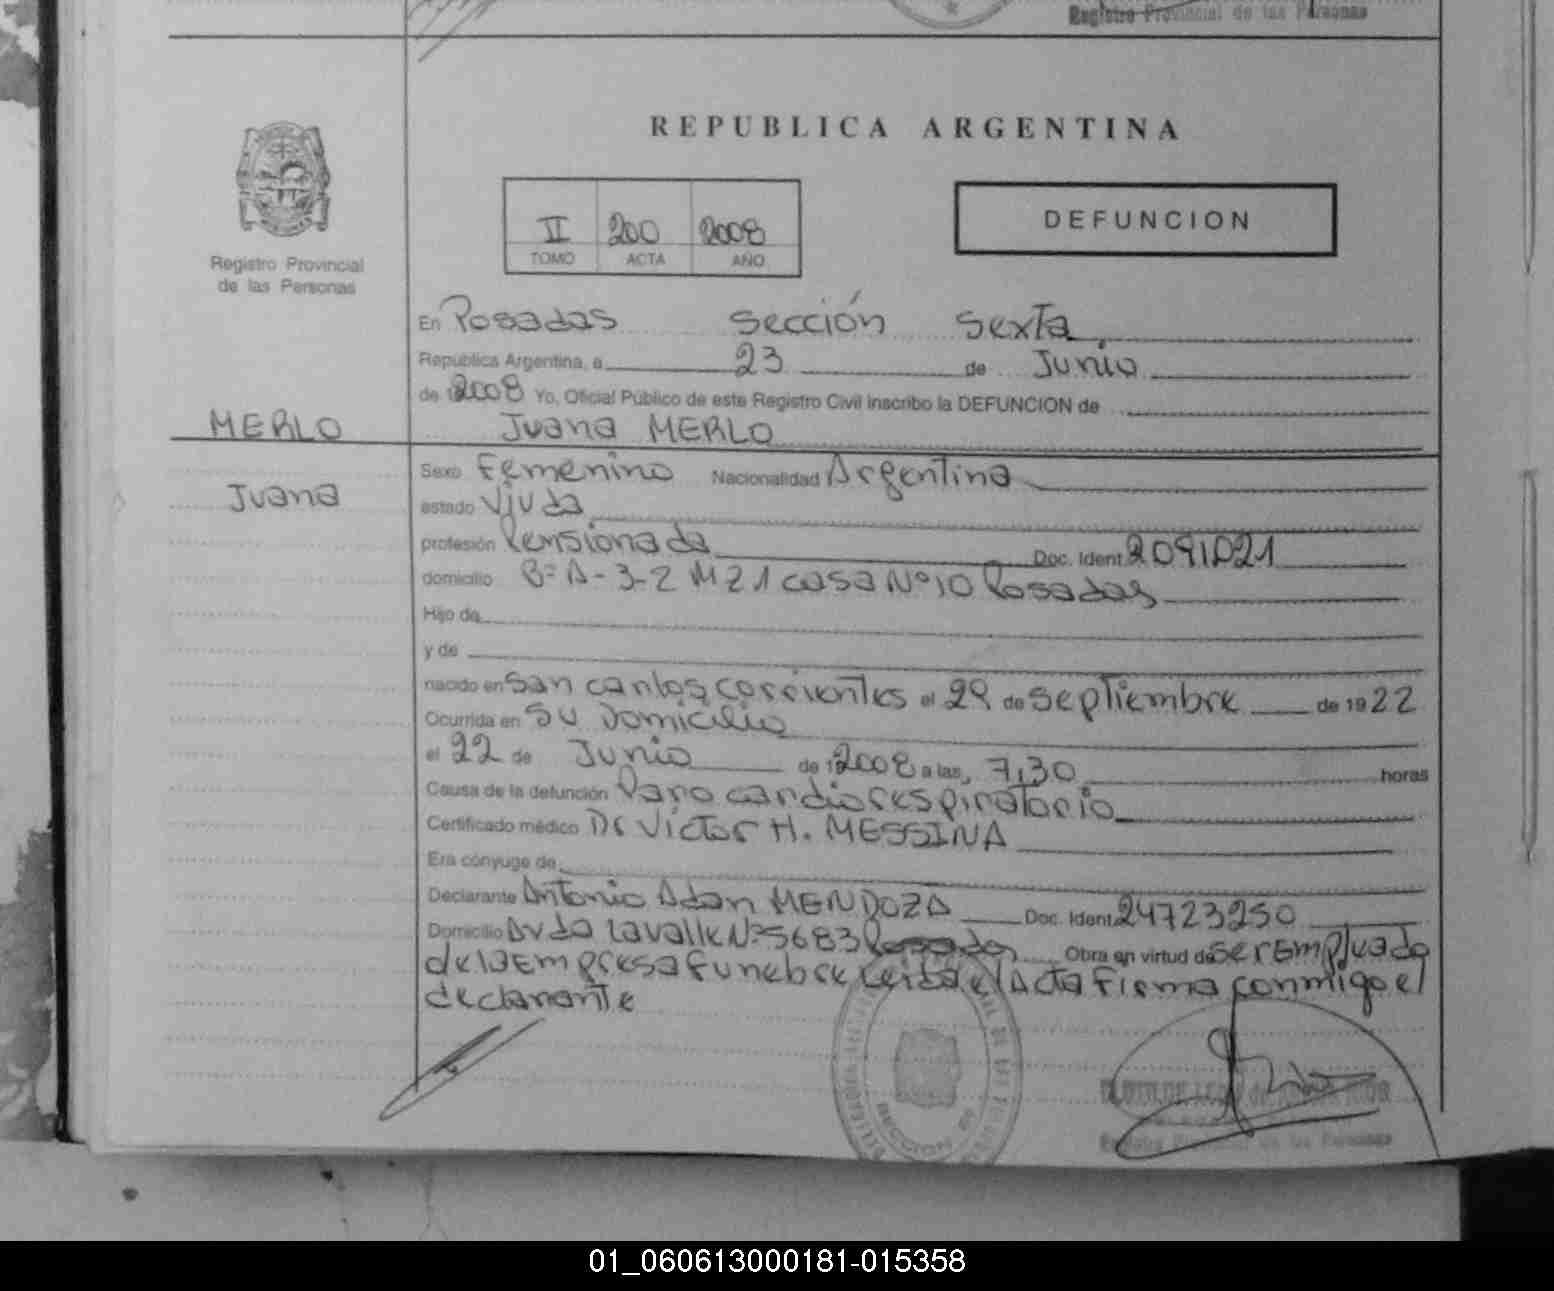 Registro Provincial de las Personas
REPUBLICA ARGENTINA
II 200 2008
TOMO ACTA AÑO
DEFUNCION
Registro Provincial
de las Personas
En Posadas sección sexta
República Argentina, a 23 de Junio
de 2008 Yo, Oficial Público de este Registro Civil inscribo la DEFUNCION de
MERLO Juana MERLO
Sexo Femenino Nacionalidad Argentina
Juana
estado Viuda
profesión Pensionada Doc. Ident. 2091021
domicilio B= A-3-2 MZ1 casa Nº10 Posadas
Hijo de
y de
nacido en San Carlos Corrientes el 29 de septiembre de 1922
Ocurrida en su Domicilio
el 22 de Junio de 2008 a las 7,30 horas
Causa de la defunción Paro cardiorespiratorio
Certificado médico Dr Victor H. MESSINA
Era cónyuge de
Declarante Antonio Adan MENDOZA Doc. Ident. 24723250
Domicilio Avda Lavalle Nº5683 Posadas Obra en virtud de ser Empleado
de la Empresa funebre Leida el Acta Firma conmigo el
declarante
Registro de las Personas
01_060613000181-015358